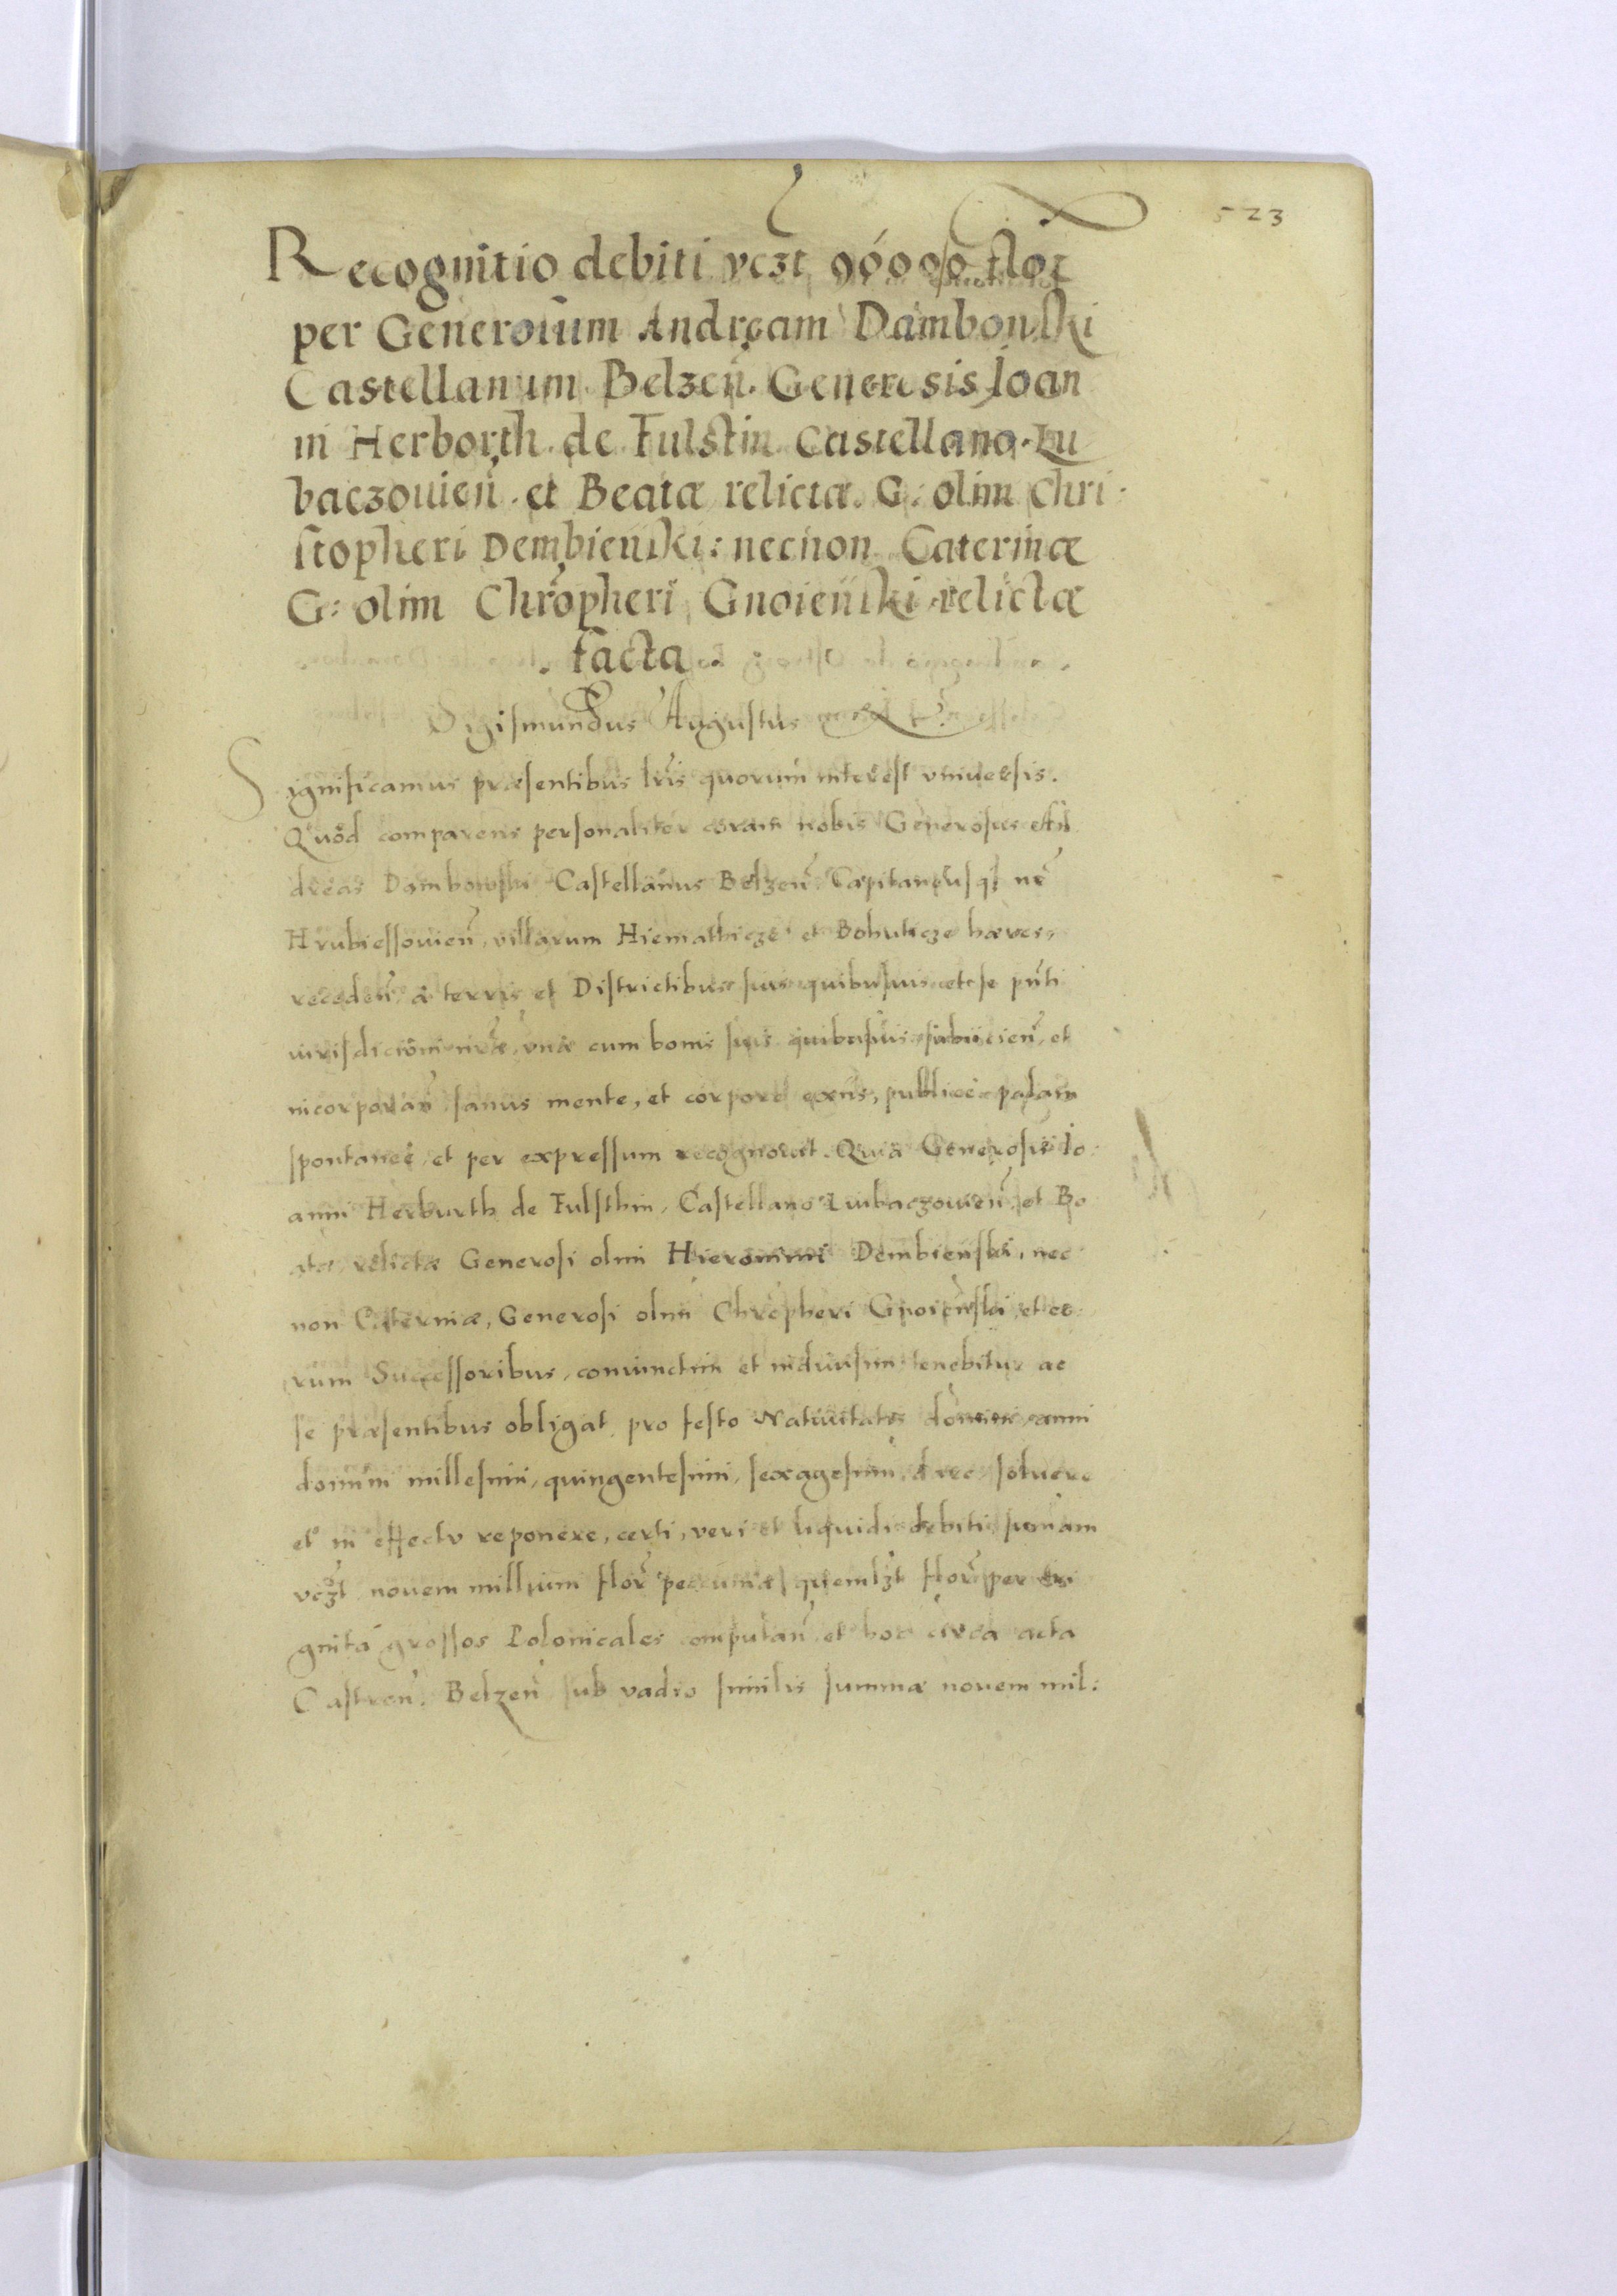 523
Recognitio debiti vczt 9000 flor
per Generosum Andream Dambowski
Castellanum Belzeñ. Generosis Ioan
ni Herborth de Fulstin Castellano Lu
baczouieñ. et Beatæ relictæ G: olim Chri:
stopheri Dembienski: necnon Caterinæ
G: olim Chropheri Gnoienski relictæ
. facta .
Sigismundus Augustus
Significamus præsentibus lris quorum interest vniuersis.
Quód comparens personaliter coram nobis Generosus An
dreas Dambowski Castellanus Belzeñ. Capitaneusq; nr
Hrubiessouieñ, villarum Hiemathicze et Bohuticze hæres,
recedeñ à terris et Districtibus suis quibusuis et se pñti
iurisdictioni nræ, vnà cum bonis suis quibusuis subiicieñ, et
incorporañ sanus mente, et corpore exñs, publicè palàm
spontaneè, et per expressum recognouit. Quia Generosis Io:
anni Herburth de Fulsthin, Castellano Lubaczouieñ, et Be
atæ relictæ Generosi olim Hieronimi Dembienski, nec
non Caterinæ, Generosi olim Chropheri Gnoienski, et eo:
rum Successoribus, coniunctim et indiuisim tenebitur ac
se præsentibus obligat pro festo Natiuitatis anni
domini millesimi, quingentesimi, sexagesimi, soluere
et in effectu reponere, certi, veri et liquidi debiti sumam
vczt nouem millium flor pecuniæ quemlzt flor per tri
ginta grossos Polonicales computañ et hoc circa acta
Castreñ. Belzeñ sub vadio similis summæ nouem mil: